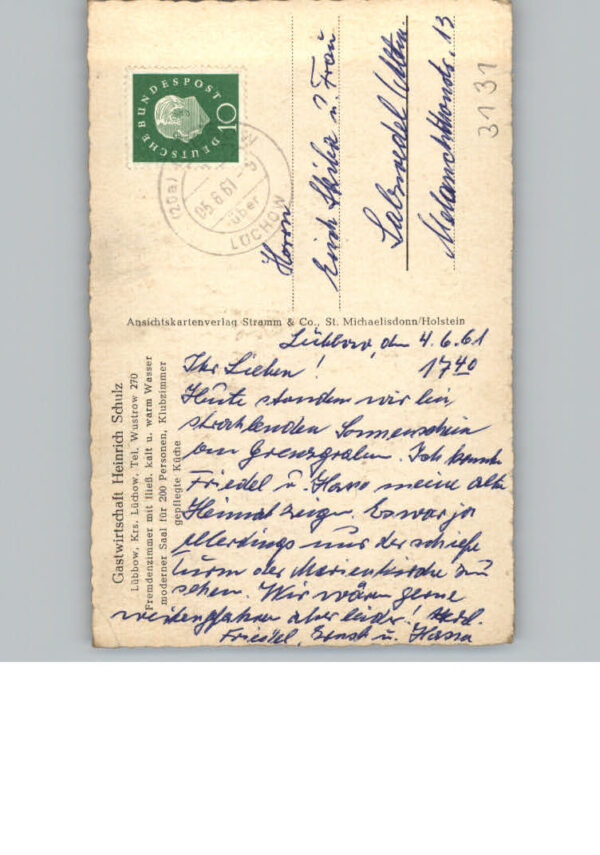 Gastwirtschaft Heinrich Schulz
Lübbow, Krs. Lüchow, Tel. Wustrow 270
Fremdenzimmer mit fließ. kalt u. warm Wasser
moderner Saal für 200 Personen, Klubzimmer
gepflegte Küche
Ansichtskartenverlag Stramm & Co., St. Michaelisdonn/Holstein
DEUTSCHE BUNDESPOST
10
(20a)
05.6.61-9
über
LÜCHOW
Herrn
Erich u. Frau
Salzwedel/Altm.
Melanchthonstr. 13
3131
Lübbow, den 4.6.61
Ihr Lieben! 17 40
Heute standen wir bei
strahlenden Sonnenschein
am Grenzgraben. Ich konnte
Friedel u. Hasso meine alte
Heimat zeigen. Es war ja
allerdings nur der schiefe
Turm der Marienkirche zu
sehen. Wir wären gerne
weitergefahren aber leider! Herzl.
Friedel, Ernst u. Hasso